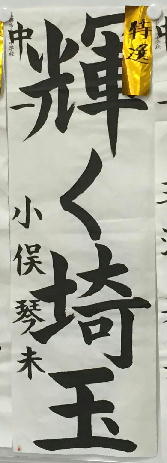 特選
輝く埼玉
中一
小俣琴未